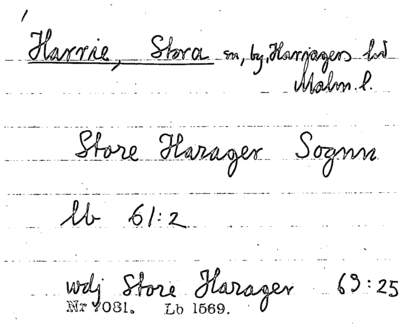 Harrie, Stora sn, by, Harjagers hd
Malm. l.
Store Harager Sognn
lb 61:2
wdj Store Harager 69:25
Nr 7081. Lb 1569.